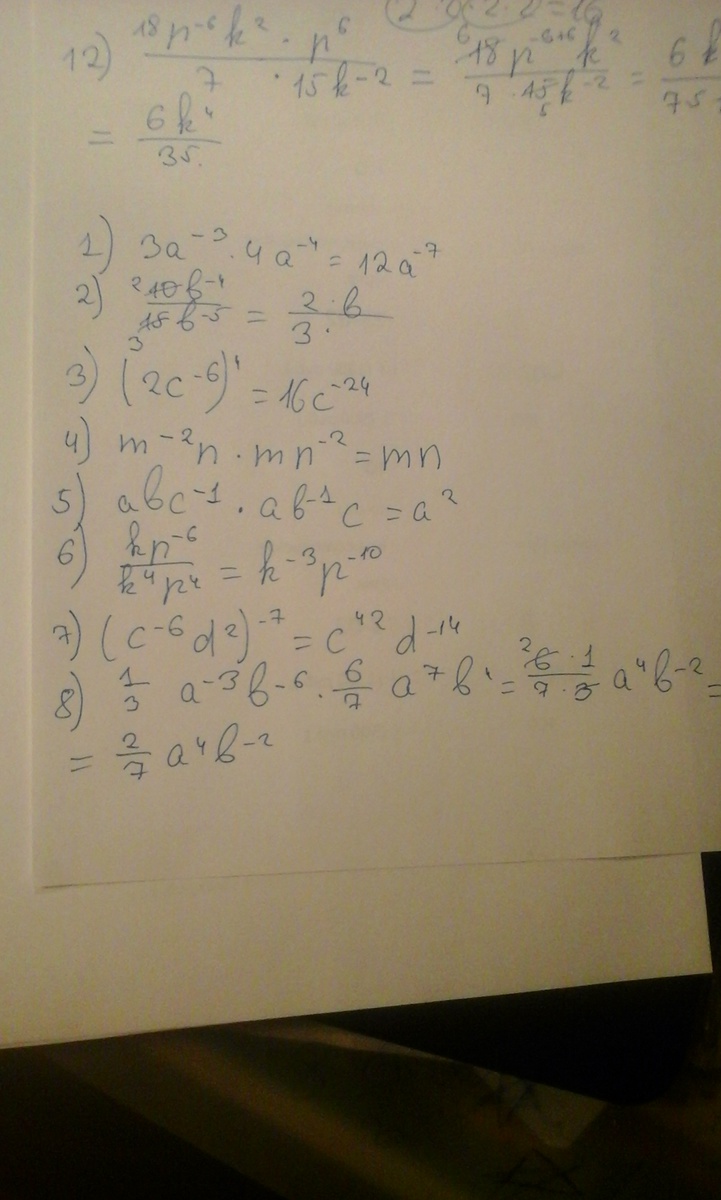 12) 18p⁻⁶k² · p⁶ / 7 · 15k⁻² = 18p⁻⁶⁺⁶k² / 7 · 15k⁻² = 6k / 75
= 6k⁴ / 35.
1) 3a⁻³ · 4a⁻⁴ = 12a⁻⁷
2) 10b⁻⁴ / 15b⁻⁵ = 2 · b / 3 ·
3) (2c⁻⁶)⁴ = 16c⁻²⁴
4) m⁻²n · mn⁻² = mn
5) abc⁻¹ · ab⁻¹c = a²
6) kp⁻⁶ / k⁴p⁴ = k⁻³p⁻¹⁰
7) (c⁻⁶d²)⁻⁷ = c⁴²d⁻¹⁴
8) 1/3 a⁻³b⁻⁶ · 6/7 a⁷b⁴ = 6 · 1 / 7 · 3 a⁴b⁻² =
= 2/7 a⁴b⁻²